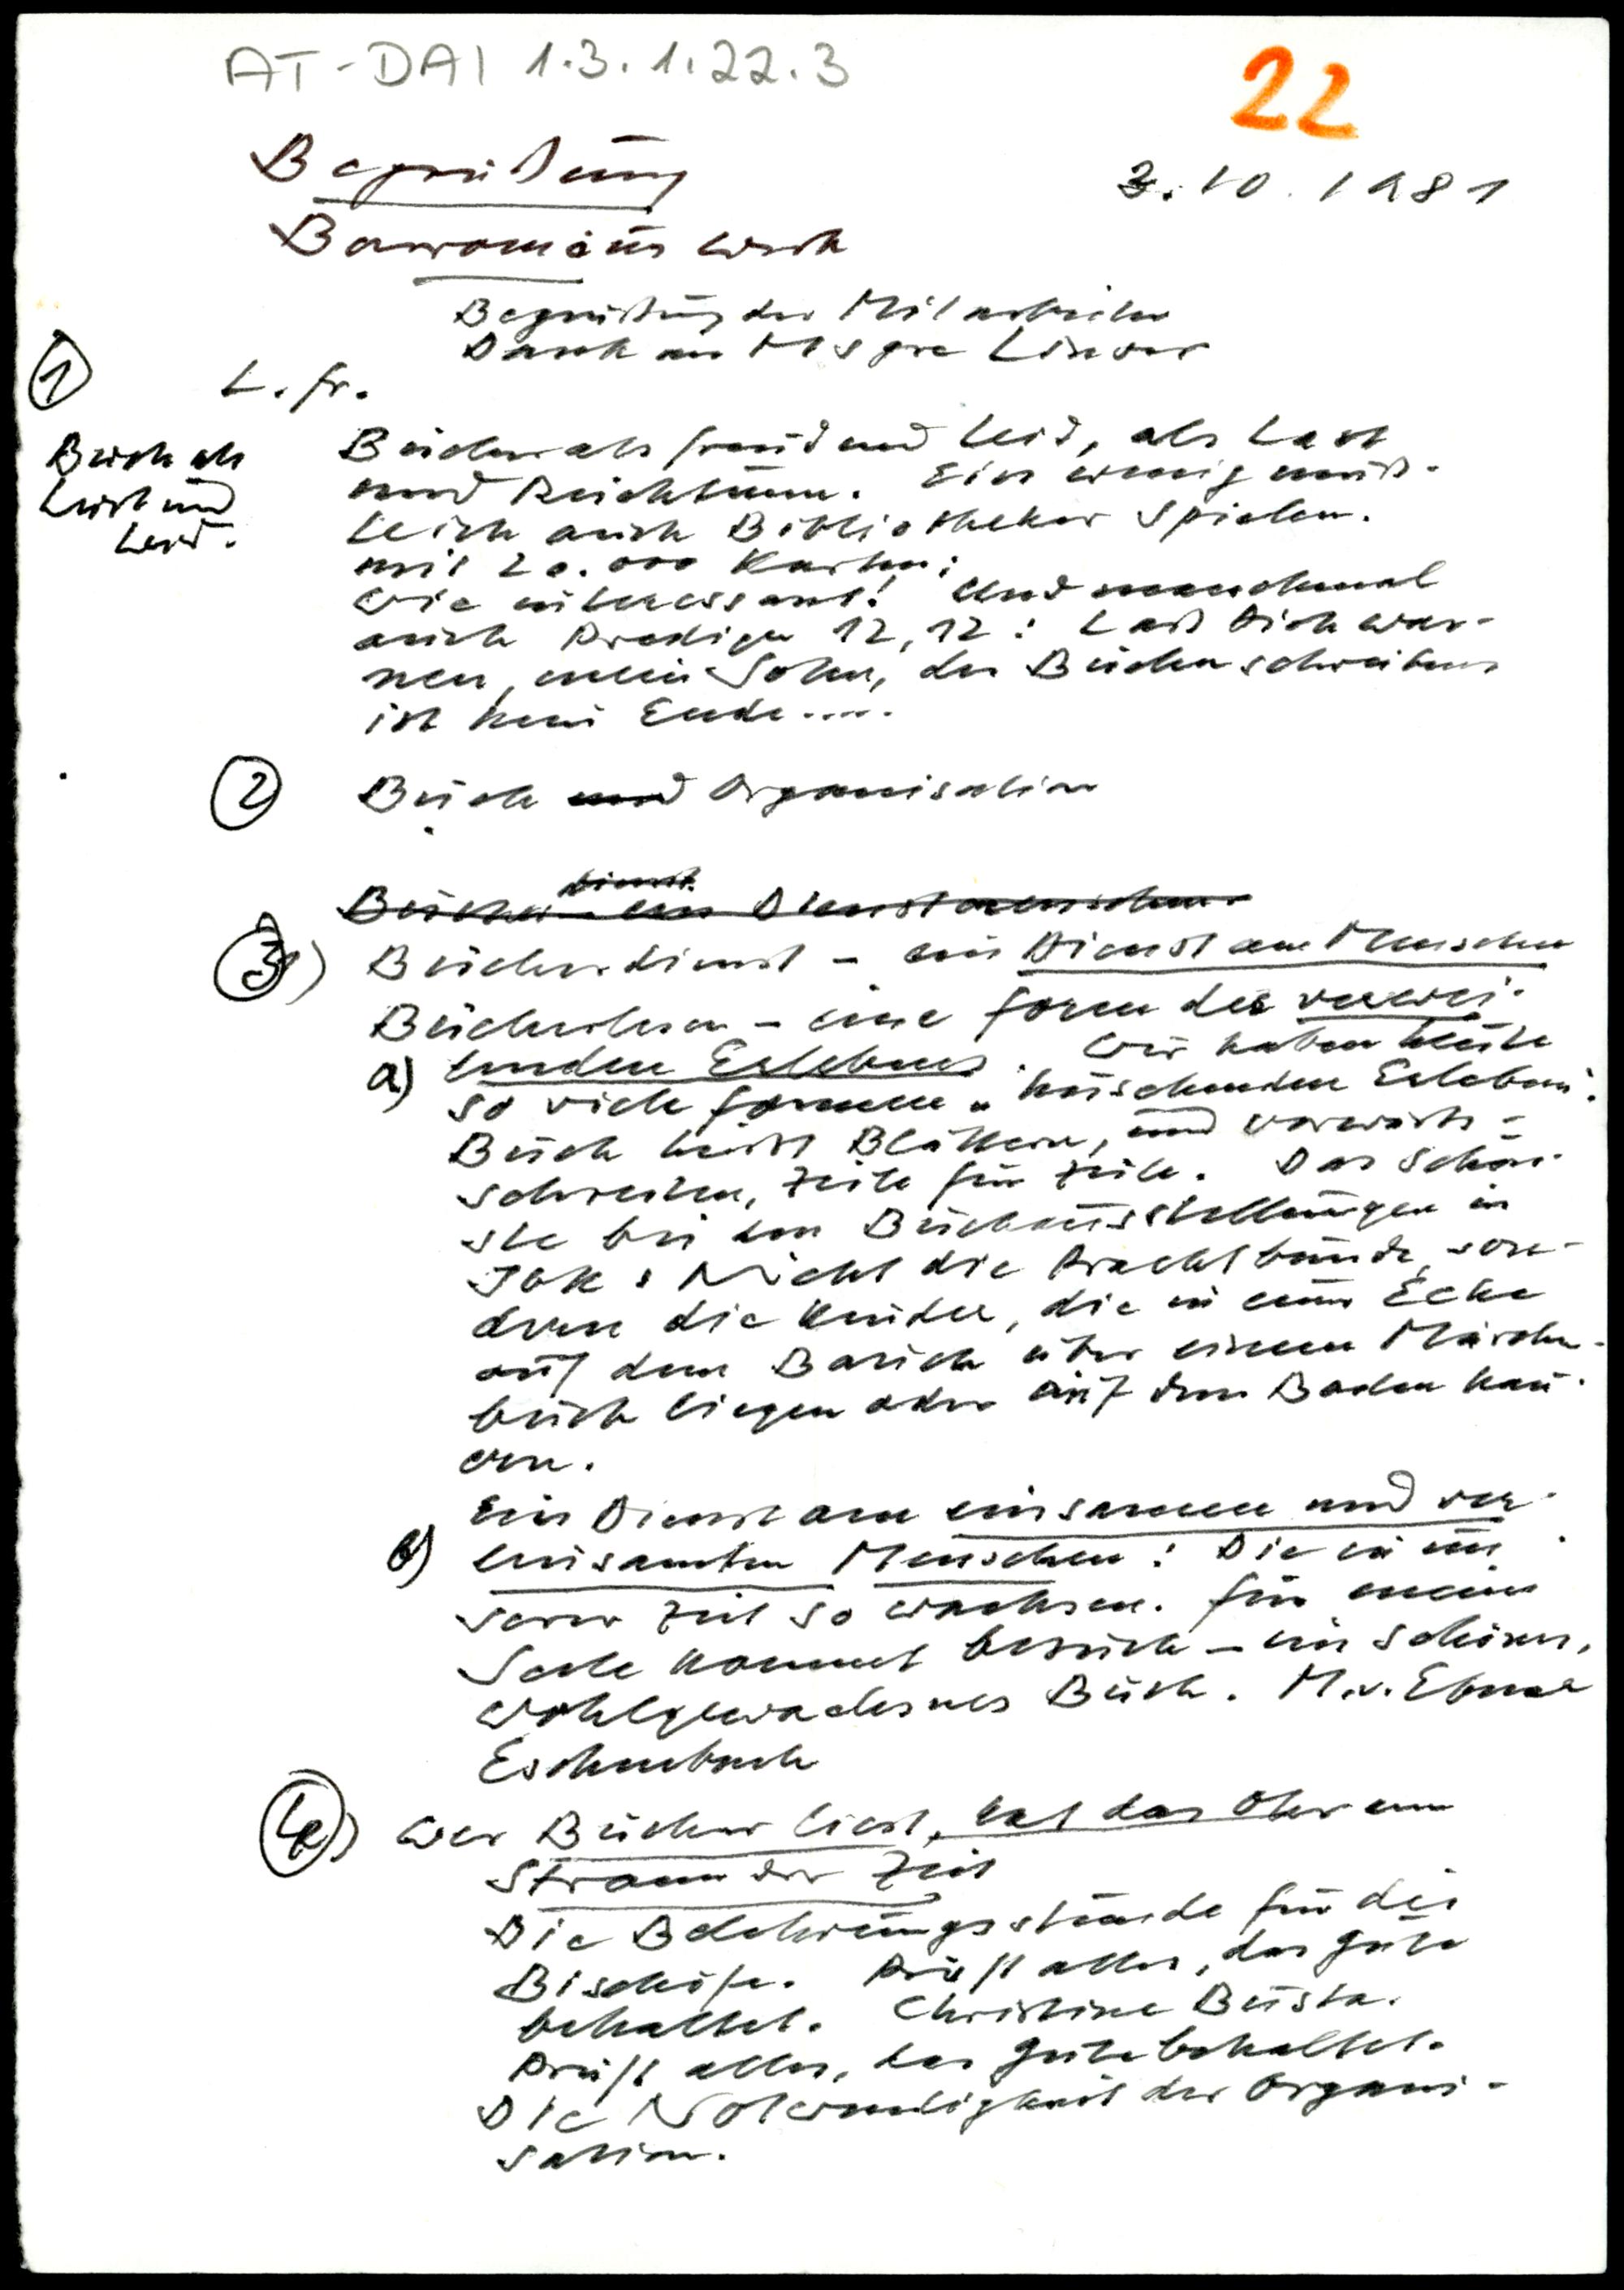 AT-DAI 1.3.1.22.3
22
Begrüßung
3.10.1981
Borromäuswerk
Begrüßung der Mitarbeiter
Dank an Msgre
①
L. Fr.
Buch als
Lust und
Leid.
Bücher als Freud und Leid, als Last
und Reichtum. Ein wenig muß-
te ich auch Bibliothekar spielen.
mit 20.000 Karten:
Wie interessant! Und manchmal
auch Prediger 12,12: Laß Dich war-
nen, mein Sohn, des Bücherschreibens
ist kein Ende....
② Buch und Organisation
dienst
Bücher - ein Dienst am Menschen
③ Bücherdienst - ein Dienst am Menschen
Bücherlesen - eine Form des verwei-
a) lenden Erlebens. Wir haben heute
so viele Formen „huschenden Erlebens.
Buch heißt Blättern, und vorwärts-
schreiten, Zeile für Zeile. Das Schön-
ste bei den Buchausstellungen in
Ibk: Nicht die Prachtbände, son-
dern die Kinder, die in einer Ecke
auf dem Bauch über einem Märchen-
buch liegen oder auf dem Boden kau-
ern.
Ein Dienst am einsamen und ver-
b) einsamten Menschen: Die in un-
serer Zeit so wachsen. Für meine
Seele kommt Besuch - ein schönes,
wohlgeratenes Buch. M.v. Ebner
Eschenbach
④) Wer Bücher liest, hat das Ohr am
Strom der Zeit
Die Belehrungsstunde für die
Bischöfe. Prüft alles, das Gute
behaltet. Christine Busta.
Prüft alles, das Gute behaltet.
Die Notwendigkeit der Organi-
sation.